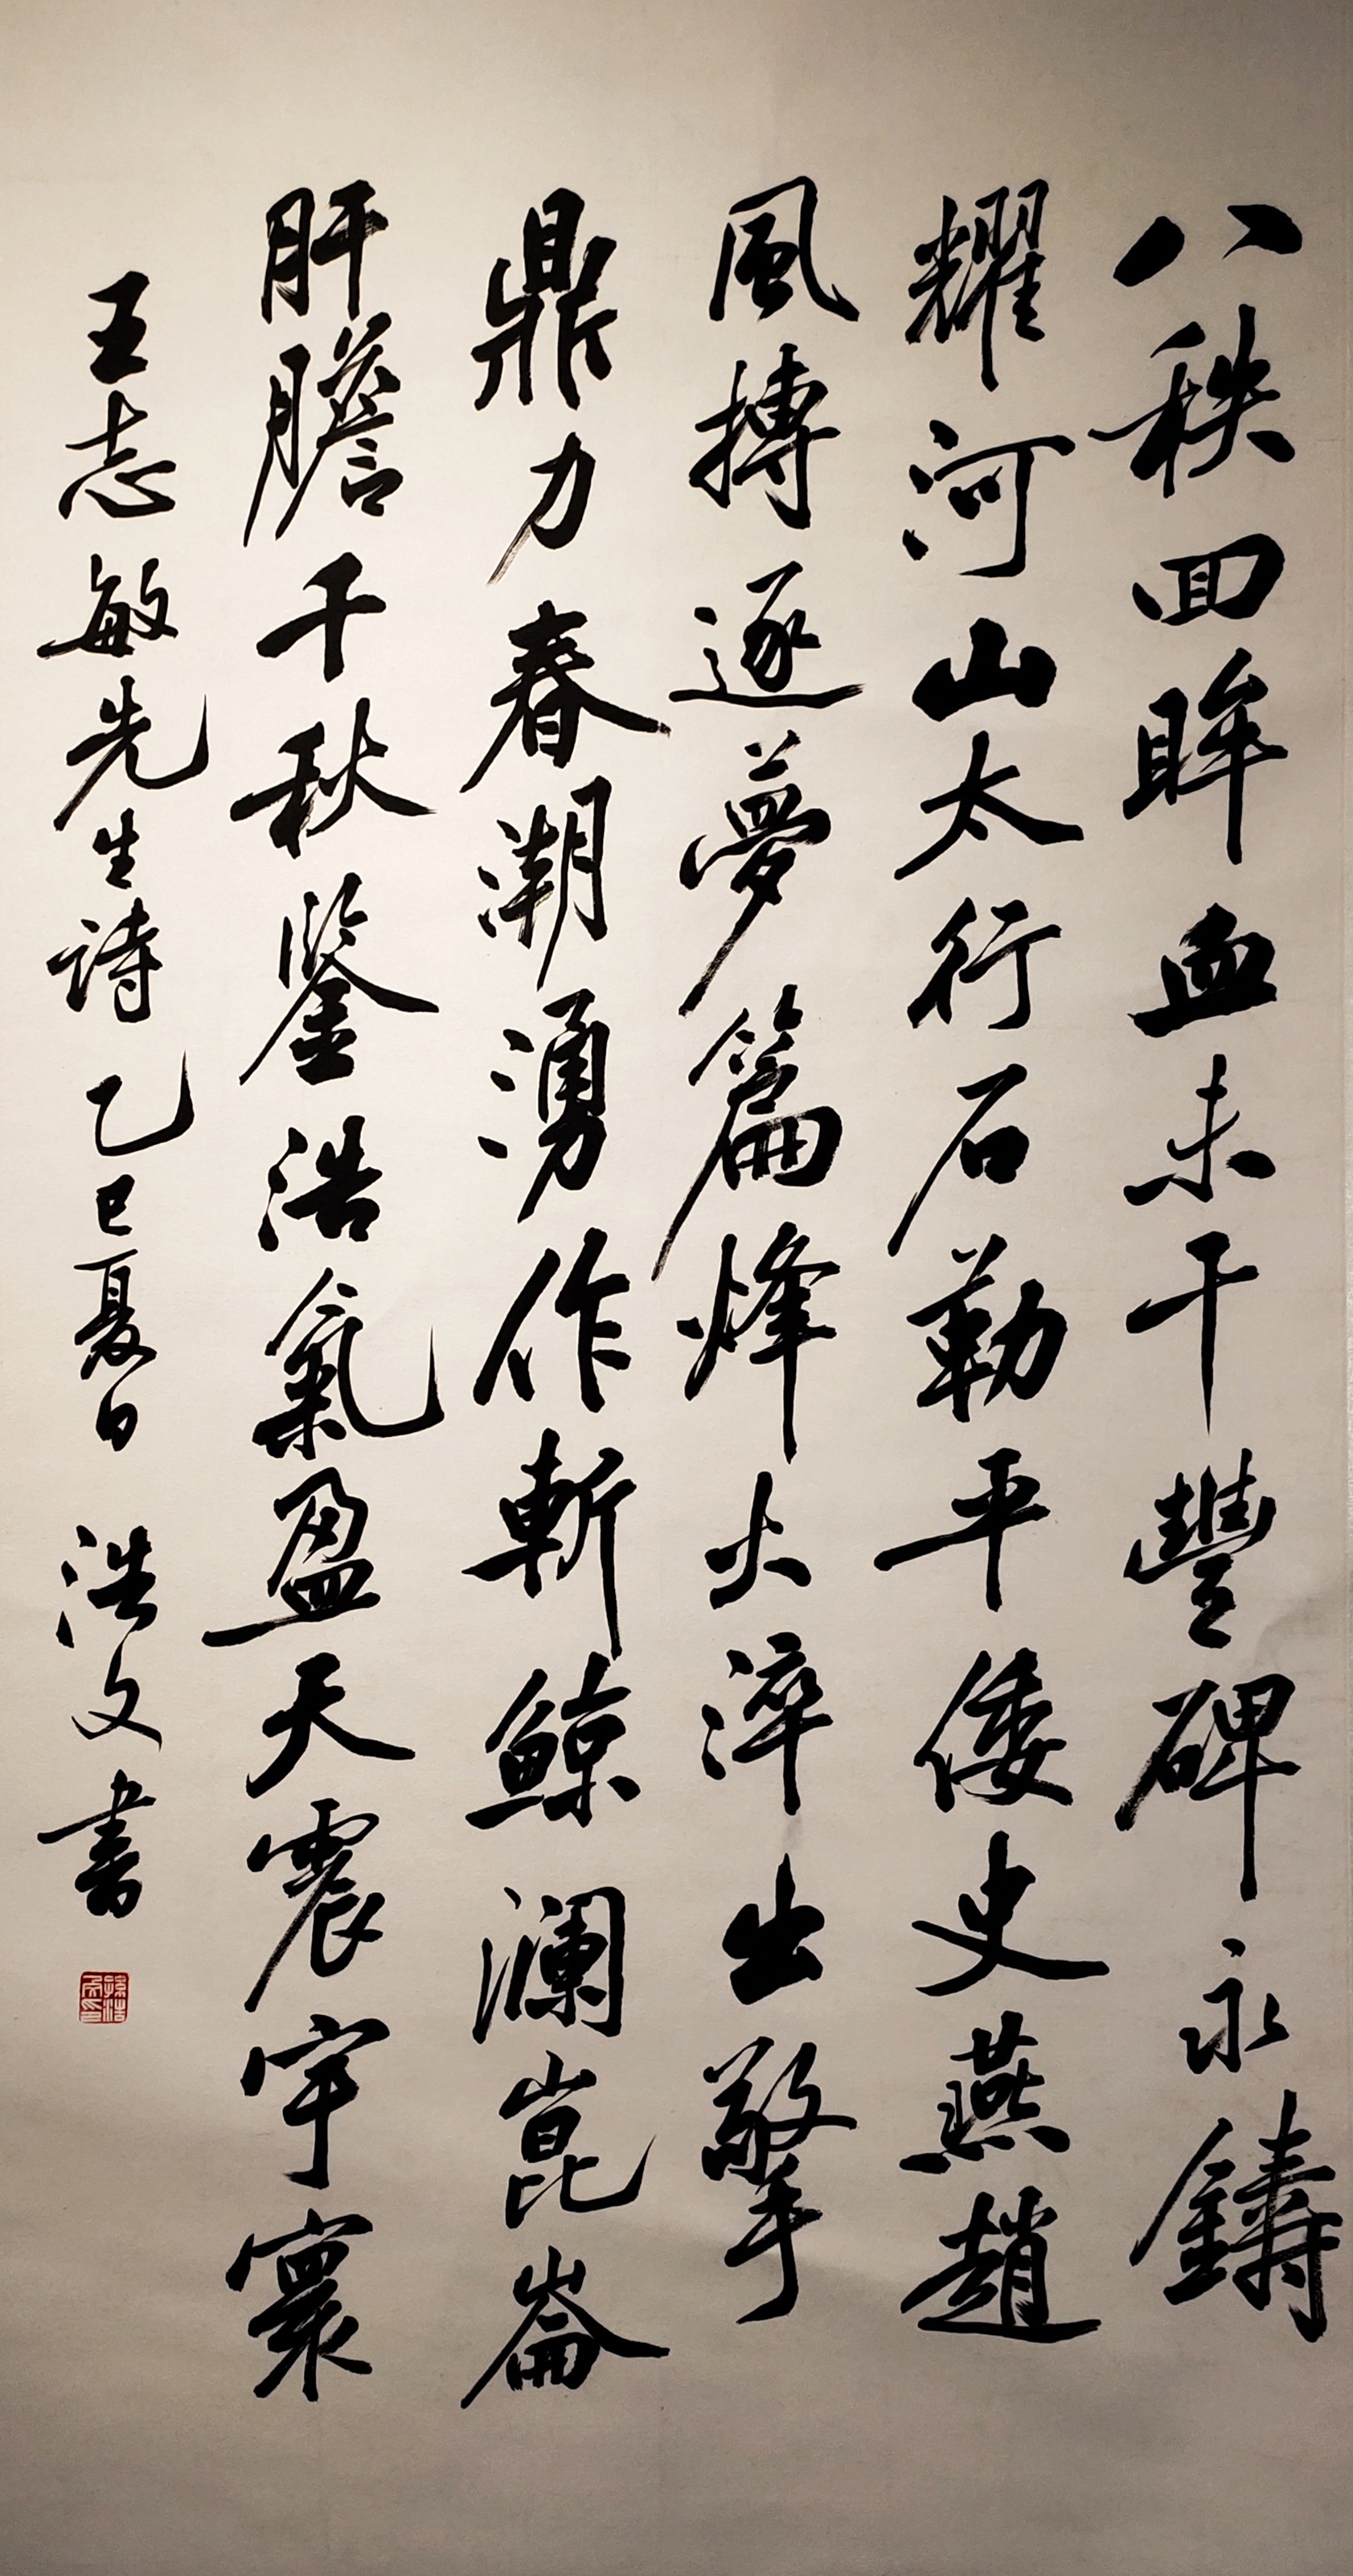 八秩回眸血未干豐碑永鑄
耀河山太行石勒平倭史燕趙
風搏逐夢篇烽火淬出擎
鼎力春潮湧作斬鯨瀾崑崙
肝膽千秋鑒浩氣盈天震宇寰
王志敏先生詩乙巳夏日 浩文書